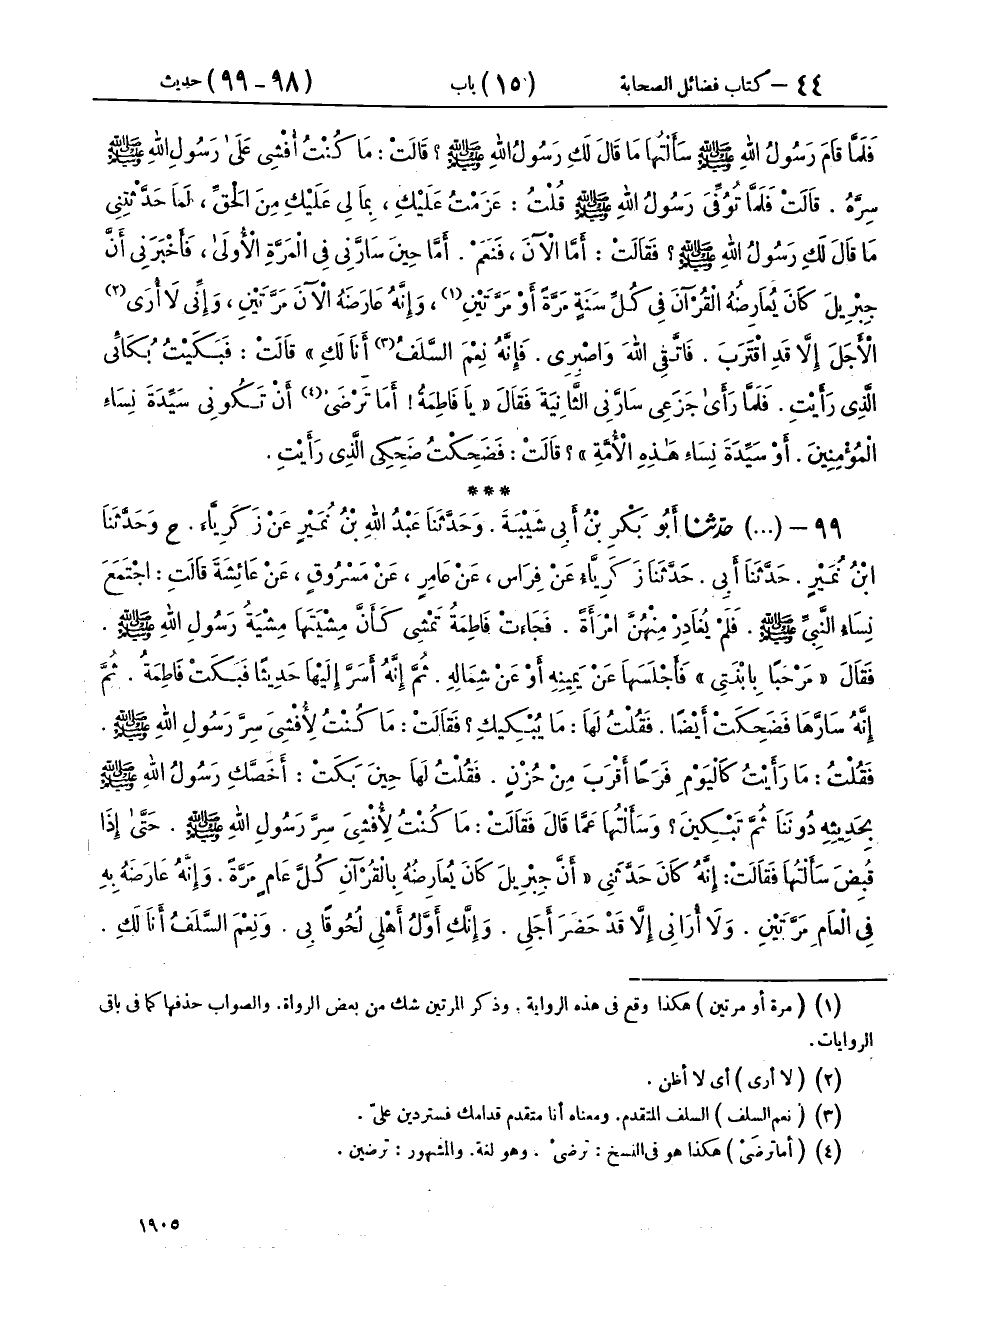 ٤٤ – كتاب فضائل الصحابة (١٥) باب (٩٨ – ٩٩) حديث
فَلَمَّا قَامَ رَسُولُ اللهِ ﷺ سَأَلْتُهَا مَا قَالَ لَكِ رَسُولُ اللهِ ﷺ ؟ قَالَتْ : مَا كُنْتُ أُفْشِي عَلَىٰ رَسُولِ اللهِ ﷺ
سِرَّهُ . قَالَتْ فَلَمَّا تُوُفِّىَ رَسُولُ اللهِ ﷺ قُلْتُ : عَزَمْتُ عَلَيْكِ ، بِمَا لِي عَلَيْكِ مِنَ الْحَقِّ ، لَمَا حَدَّثْتِنِي
مَا قَالَ لَكِ رَسُولُ اللهِ ﷺ ؟ فَقَالَتْ : أَمَّا الْآنَ ، فَنَعَمْ . أَمَّا حِينَ سَارَّنِي فِي الْمَرَّةِ الْأُولَىٰ ، فَأَخْبَرَنِي أَنَّ
جِبْرِيلَ كَانَ يُعَارِضُهُ الْقُرْآنَ فِي كُلِّ سَنَةٍ مَرَّةً أَوْ مَرَّتَيْنِ (١) ، وَإِنَّهُ عَارَضَهُ الْآنَ مَرَّتَيْنِ ، وَإِنِّي لَا أُرَى (٢)
الْأَجَلَ إِلَّا قَدِ اقْتَرَبَ . فَاتَّقِي اللهَ وَاصْبِرِي . فَإِنَّهُ نِعْمَ السَّلَفُ (٣) أَنَا لَكِ » قَالَتْ : فَبَكَيْتُ بُكَائِي
الَّذِي رَأَيْتِ . فَلَمَّا رَأَىٰ جَزَعِي سَارَّنِي الثَّانِيَةَ فَقَالَ « يَا فَاطِمَةُ ! أَمَا تَرْضَىْ (٤) أَنْ تَكُونِي سَيِّدَةَ نِسَاءِ
الْمُؤْمِنِينَ . أَوْ سَيِّدَةَ نِسَاءِ هَٰذِهِ الْأُمَّةِ » ؟ قَالَتْ : فَضَحِكْتُ ضَحِكِي الَّذِي رَأَيْتِ .
***
٩٩ – (...) حدّثنا أَبُو بَكْرِ بْنُ أَبِي شَيْبَةَ . وَحَدَّثَنَا عَبْدُ اللهِ بْنُ نُمَيْرٍ عَنْ زَكَرِيَّاءَ . ح وَحَدَّثَنَا
ابْنُ نُمَيْرٍ . حَدَّثَنَا أَبِي . حَدَّثَنَا زَكَرِيَّاءُ عَنْ فِرَاسٍ ، عَنْ عَامِرٍ ، عَنْ مَسْرُوقٍ ، عَنْ عَائِشَةَ قَالَتِ : اجْتَمَعَ
نِسَاءُ النَّبِيِّ ﷺ . فَلَمْ يُغَادِرْ مِنْهُنَّ امْرَأَةً . فَجَاءَتْ فَاطِمَةُ تَمْشِي كَأَنَّ مِشْيَتَهَا مِشْيَةُ رَسُولِ اللهِ ﷺ .
فَقَالَ « مَرْحَبًا بِابْنَتِي » فَأَجْلَسَهَا عَنْ يَمِينِهِ أَوْ عَنْ شِمَالِهِ . ثُمَّ إِنَّهُ أَسَرَّ إِلَيْهَا حَدِيثًا فَبَكَتْ فَاطِمَةُ . ثُمَّ
إِنَّهُ سَارَّهَا فَضَحِكَتْ أَيْضًا . فَقُلْتُ لَهَا : مَا يُبْكِيكِ ؟ فَقَالَتْ : مَا كُنْتُ لِأُفْشِيَ سِرَّ رَسُولِ اللهِ ﷺ .
فَقُلْتُ : مَا رَأَيْتُ كَالْيَوْمِ فَرَحًا أَقْرَبَ مِنْ حُزْنٍ . فَقُلْتُ لَهَا حِينَ بَكَتْ : أَخَصَّكِ رَسُولُ اللهِ ﷺ
بِحَدِيثِهِ دُونَنَا ثُمَّ تَبْكِينَ ؟ وَسَأَلْتُهَا عَمَّا قَالَ فَقَالَتْ : مَا كُنْتُ لِأُفْشِيَ سِرَّ رَسُولِ اللهِ ﷺ . حَتَّىٰ إِذَا
قُبِضَ سَأَلْتُهَا فَقَالَتْ : إِنَّهُ كَانَ حَدَّثَنِي « أَنَّ جِبْرِيلَ كَانَ يُعَارِضُهُ بِالْقُرْآنِ كُلَّ عَامٍ مَرَّةً . وَإِنَّهُ عَارَضَهُ بِهِ
فِي الْعَامِ مَرَّتَيْنِ . وَلَا أُرَانِي إِلَّا قَدْ حَضَرَ أَجَلِي . وَإِنَّكِ أَوَّلُ أَهْلِي لُحُوقًا بِي . وَنِعْمَ السَّلَفُ أَنَا لَكِ .
(١) ( مرة أو مرتين ) هكذا وقع فى هذه الرواية . وذكر المرتين شك من بعض الرواة. والصواب حذفها كما فى باقى
الروايات.
(٢) ( لا أرى ) أى لا أظن .
(٣) ( نعم السلف ) السلف المتقدم. ومعناه أنا متقدم قدامك فستردين علىّ .
(٤) ( أما ترضىْ ) هكذا هو فى النسخ : ترضىْ . وهو لغة. والمشهور : ترضين .
١٩٠٥